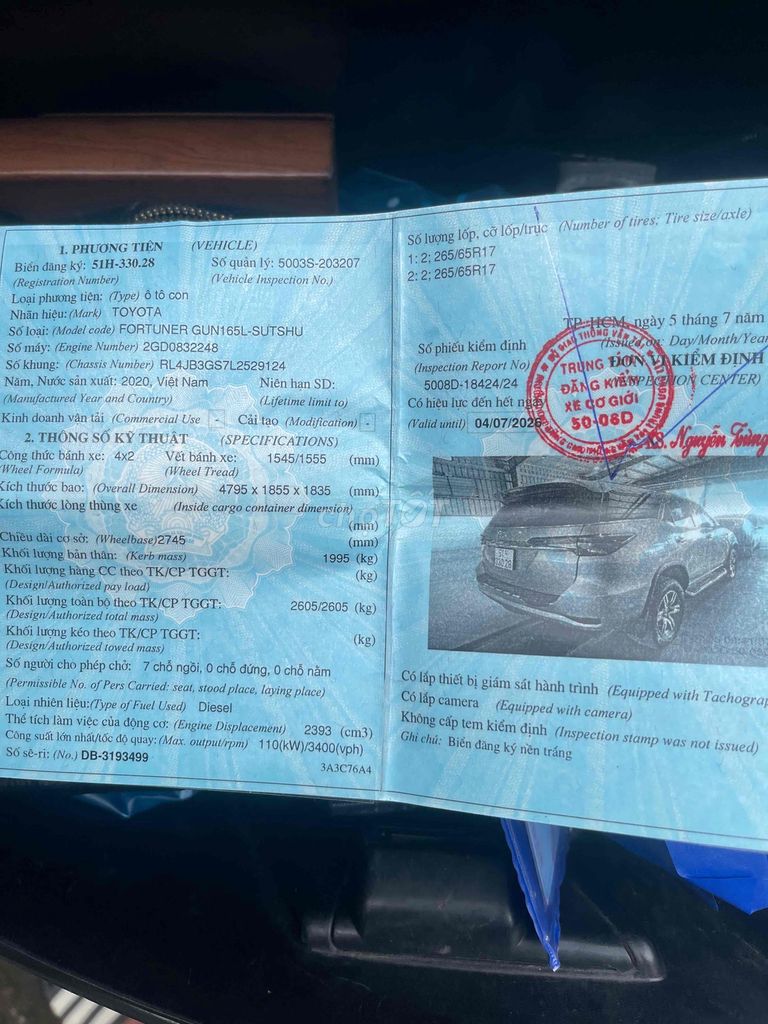 1. PHƯƠNG TIỆN (VEHICLE)
Biển đăng ký: 51H-330.28 Số quản lý: 5003S-203207
(Registration Number) (Vehicle Inspection No.)
Loại phương tiện: (Type) ô tô con
Nhãn hiệu: (Mark) TOYOTA
Số loại: (Model code) FORTUNER GUN165L-SUTSHU
Số máy: (Engine Number) 2GD0832248
Số khung: (Chassis Number) RL4JB3GS7L2529124
Năm, Nước sản xuất: 2020, Việt Nam Niên hạn SD:
(Manufactured Year and Country) (Lifetime limit to)
Kinh doanh vận tải (Commercial Use - Cải tạo (Modification) -
2. THÔNG SỐ KỸ THUẬT (SPECIFICATIONS)
Công thức bánh xe: 4x2 Vết bánh xe: 1545/1555 (mm)
(Wheel Formula) (Wheel Tread)
Kích thước bao: (Overall Dimension) 4795 x 1855 x 1835 (mm)
Kích thước lòng thùng xe (Inside cargo container dimension)
(mm)
Chiều dài cơ sở: (Wheelbase)2745 (mm)
Khối lượng bản thân: (Kerb mass) 1995 (kg)
Khối lượng hàng CC theo TK/CP TGGT: (kg)
(Design/Authorized pay load)
Khối lượng toàn bộ theo TK/CP TGGT: 2605/2605 (kg)
(Design/Authorized total mass)
Khối lượng kéo theo TK/CP TGGT: (kg)
(Design/Authorized towed mass)
Số người cho phép chở: 7 chỗ ngồi, 0 chỗ đứng, 0 chỗ nằm
(Permissible No. of Pers Carried: seat, stood place, laying place)
Loại nhiên liệu:(Type of Fuel Used) Diesel
Thể tích làm việc của động cơ: (Engine Displacement) 2393 (cm3)
Công suất lớn nhất/tốc độ quay: (Max. output/rpm) 110(kW)/3400(vph)
Số sê-ri: (No.) DB-3193499
3A3C76A4
Số lượng lốp, cỡ lốp/trục (Number of tires; Tire size/axle)
1: 2; 265/65R17
2: 2; 265/65R17
TP. HCM, ngày 5 tháng 7 năm
(Issued on: Day/Month/Year
Số phiếu kiểm định ĐƠN VỊ KIỂM ĐỊNH
(Inspection Report No) (INSPECTION CENTER)
5008D-18424/24
Có hiệu lực đến hết ngày
(Valid until) 04/07/2026
TRUNG TÂM
ĐĂNG KIỂM
XE CƠ GIỚI
50-08D
Nguyễn Tùng
chợ TỐT
Có lắp thiết bị giám sát hành trình (Equipped with Tachograp
Có lắp camera (Equipped with camera)
Không cấp tem kiểm định (Inspection stamp was not issued)
Ghi chú: Biển đăng ký nền trắng